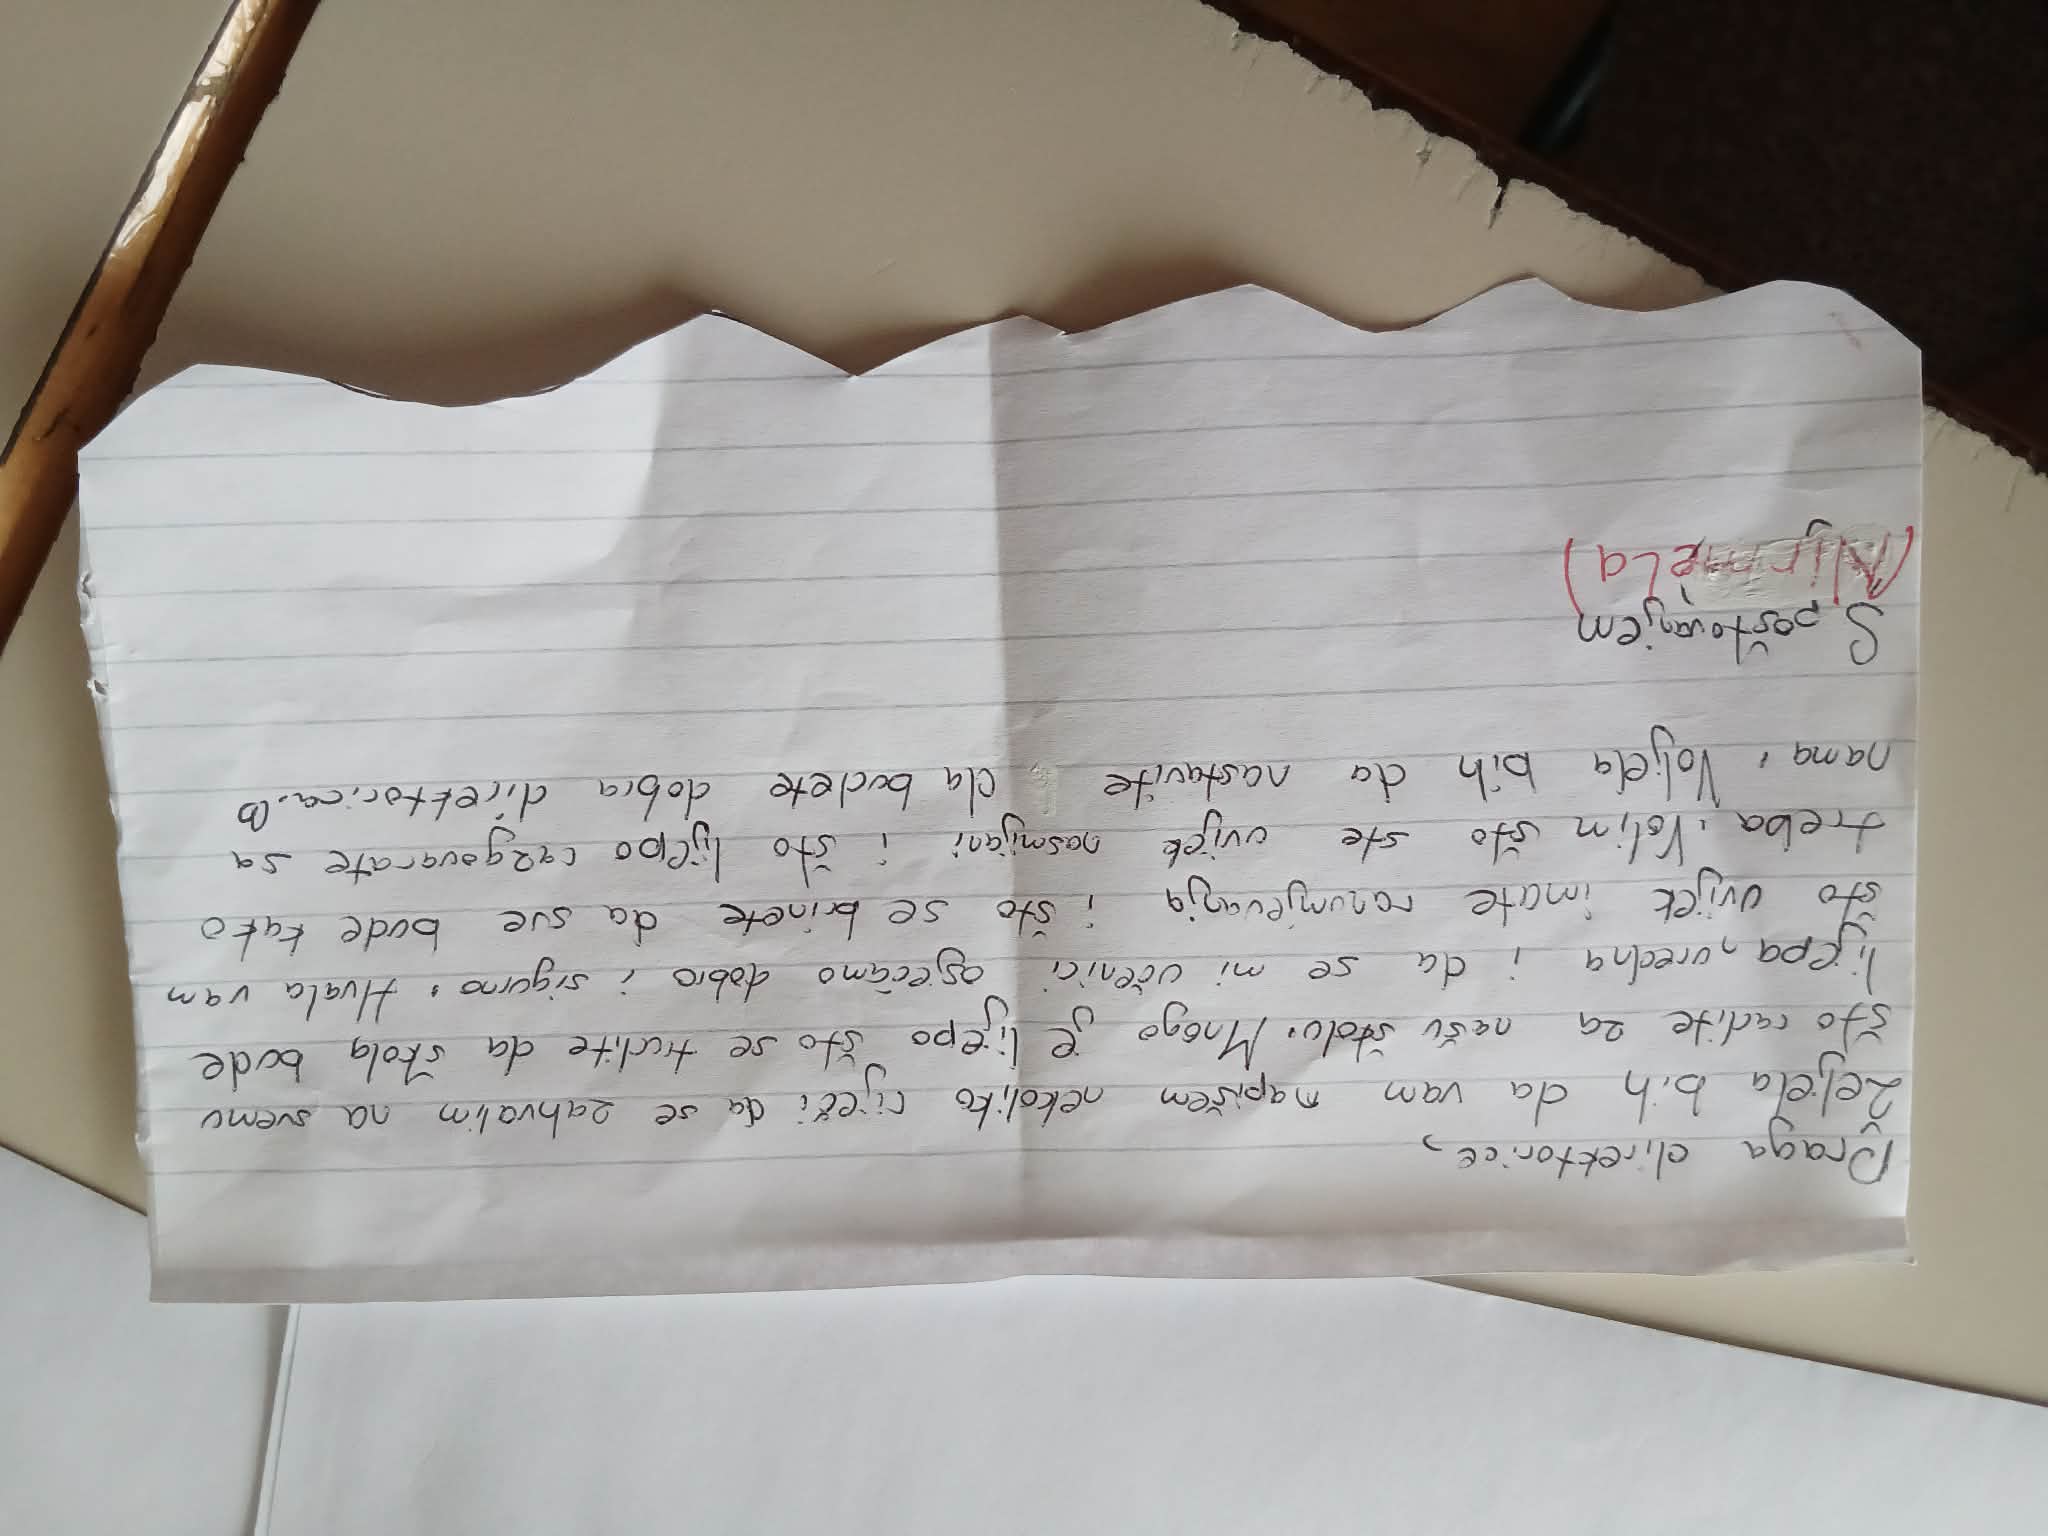 Draga direktorice,
Željela bih da vam napišem nekoliko riječi da se zahvalim na svemu
što radite za našu školu. Mnogo je lijepo što se trudite da škola bude
lijepa, uredna i da se mi učenici osjećamo dobro i sigurno. Hvala vam
što uvijek imate razumjevanja i što se brinete da sve bude kako
treba. Volim što ste uvijek nasmijani i što lijepo razgovarate sa
nama. Voljela bih da nastavite da budete dobra direktorica.
S poštovanjem